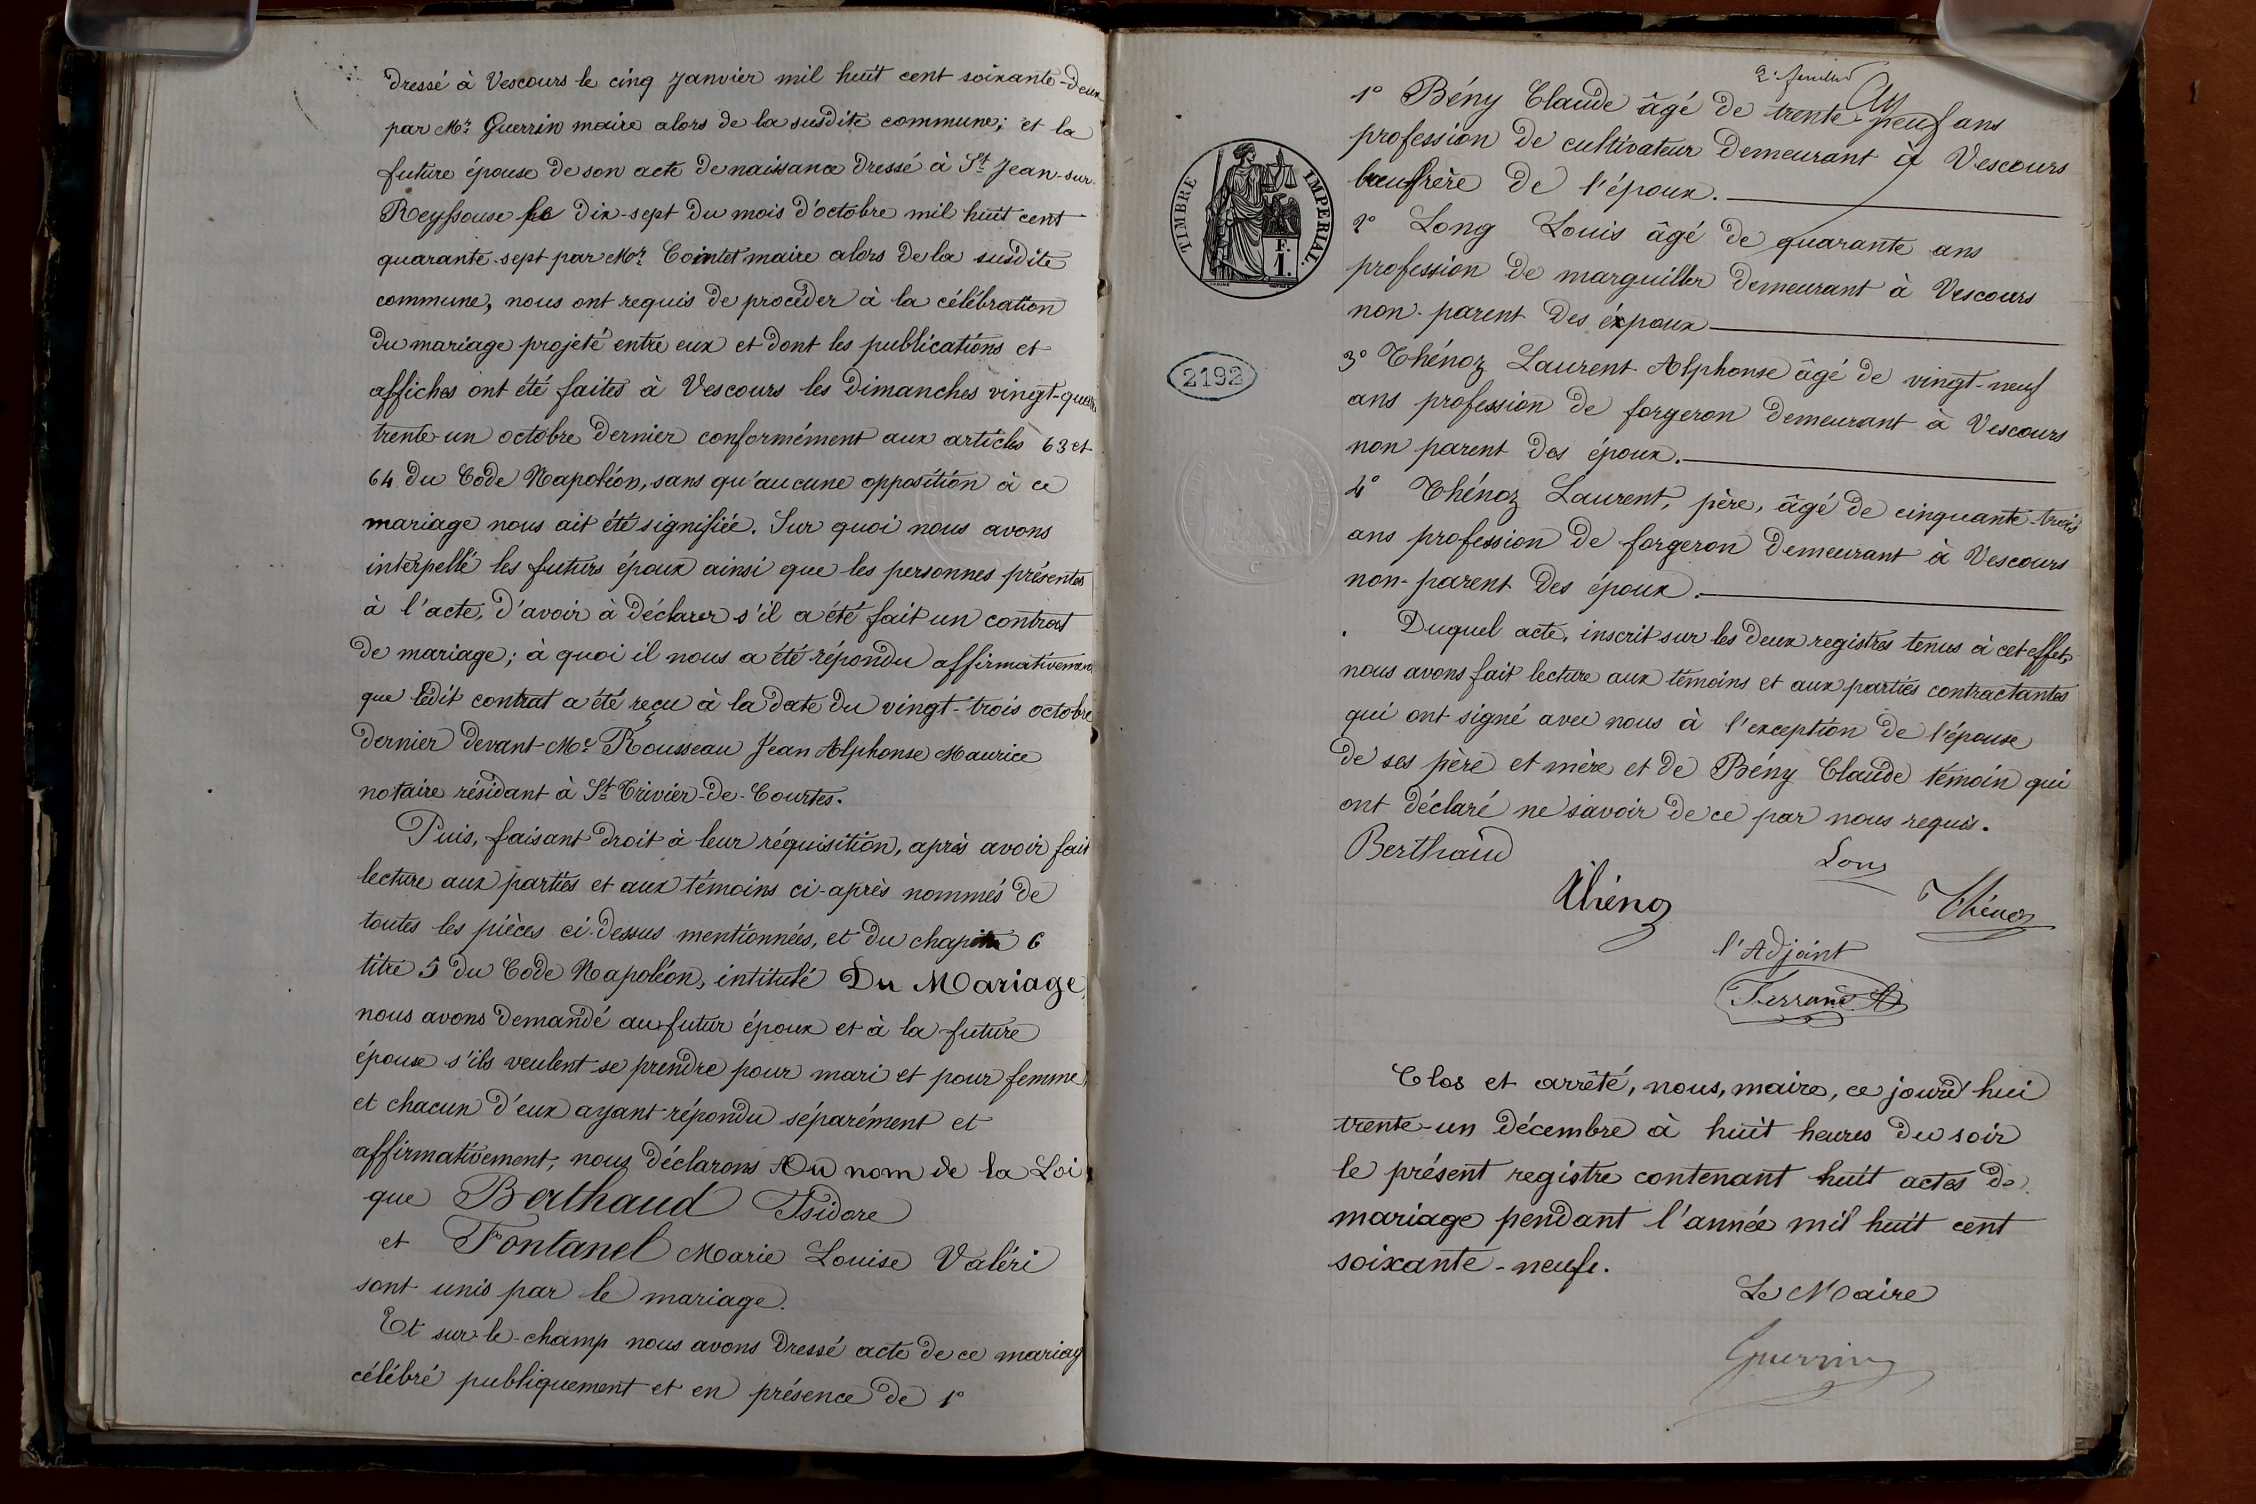 dressé à Vescours le cinq janvier mil huit cent soixante-deux
par Mr. Guerrin maire alors de la susdite commune; et la
future épouse de son acte de naissance dressé à St Jean-sur-
Reyssouse le dix-sept du mois d'octobre mil huit cent
quarante-sept par Mr. Cointet maire alors de la susdite
commune, nous ont requis de procéder à la célébration
du mariage projeté entre eux et dont les publications et
affiches ont été faites à Vescours les dimanches vingt-quatre
trente-un octobre dernier conformément aux articles 63 et
64 du Code Napoléon, sans qu'aucune opposition à ce
mariage nous ait été signifiée. Sur quoi nous avons
interpellé les futurs époux ainsi que les personnes présentes
à l'acte, d'avoir à déclarer s'il a été fait un contrat
de mariage; à quoi il nous a été répondu affirmativement
que ledit contrat a été reçu à la date du vingt-trois octobre
dernier devant Me Rousseau Jean Alphonse Maurice
notaire résidant à St Trivier-de-Courtes.
Puis, faisant droit à leur réquisition, après avoir fait
lecture aux parties et aux témoins ci-après nommés de
toutes les pièces ci-dessus mentionnées, et du chapitre 6
titre 5 du Code Napoléon, intitulé Du Mariage,
nous avons demandé au futur époux et à la future
épouse s'ils veulent se prendre pour mari et pour femme
et chacun d'eux ayant répondu séparément et
affirmativement, nous déclarons Au nom de la Loi
que Berthaud Isidore
et Fontanel Marie Louise Valéri
sont unis par le mariage.
Et sur-le-champ nous avons dressé acte de ce mariage
célébré publiquement et en présence de 1°
2e feuillet
1° Bény Claude âgé de trente-neuf ans
profession de cultivateur demeurant à Vescours
beaufrère de l'époux.
2° Long Louis âgé de quarante ans
profession de marguiller demeurant à Vescours
non-parent des époux
3° Thénoz Laurent Alphonse âgé de vingt-neuf
ans profession de forgeron demeurant à Vescours
non parent des époux.
4° Thénoz Laurent, père, âgé de cinquante-trois
ans profession de forgeron demeurant à Vescours
non-parent des époux.
Duquel acte, inscrit sur les deux registres tenus à cet effet,
nous avons fait lecture aux témoins et aux parties contractantes
qui ont signé avec nous à l'exception de l'épouse
de ses père et mère et de Bény Claude témoin qui
ont déclaré ne savoir de ce par nous requis.
Berthaud
Long
Thénoz
Thénoz
l'Adjoint
Ferrand
Clos et arrêté, nous, maire, ce jourd'hui
trente-un décembre à huit heures du soir
le présent registre contenant huit actes de
mariage pendant l'année mil huit cent
soixante-neuf.
Le Maire
Guerrin
TIMBRE IMPERIAL.
F.
1.
2192